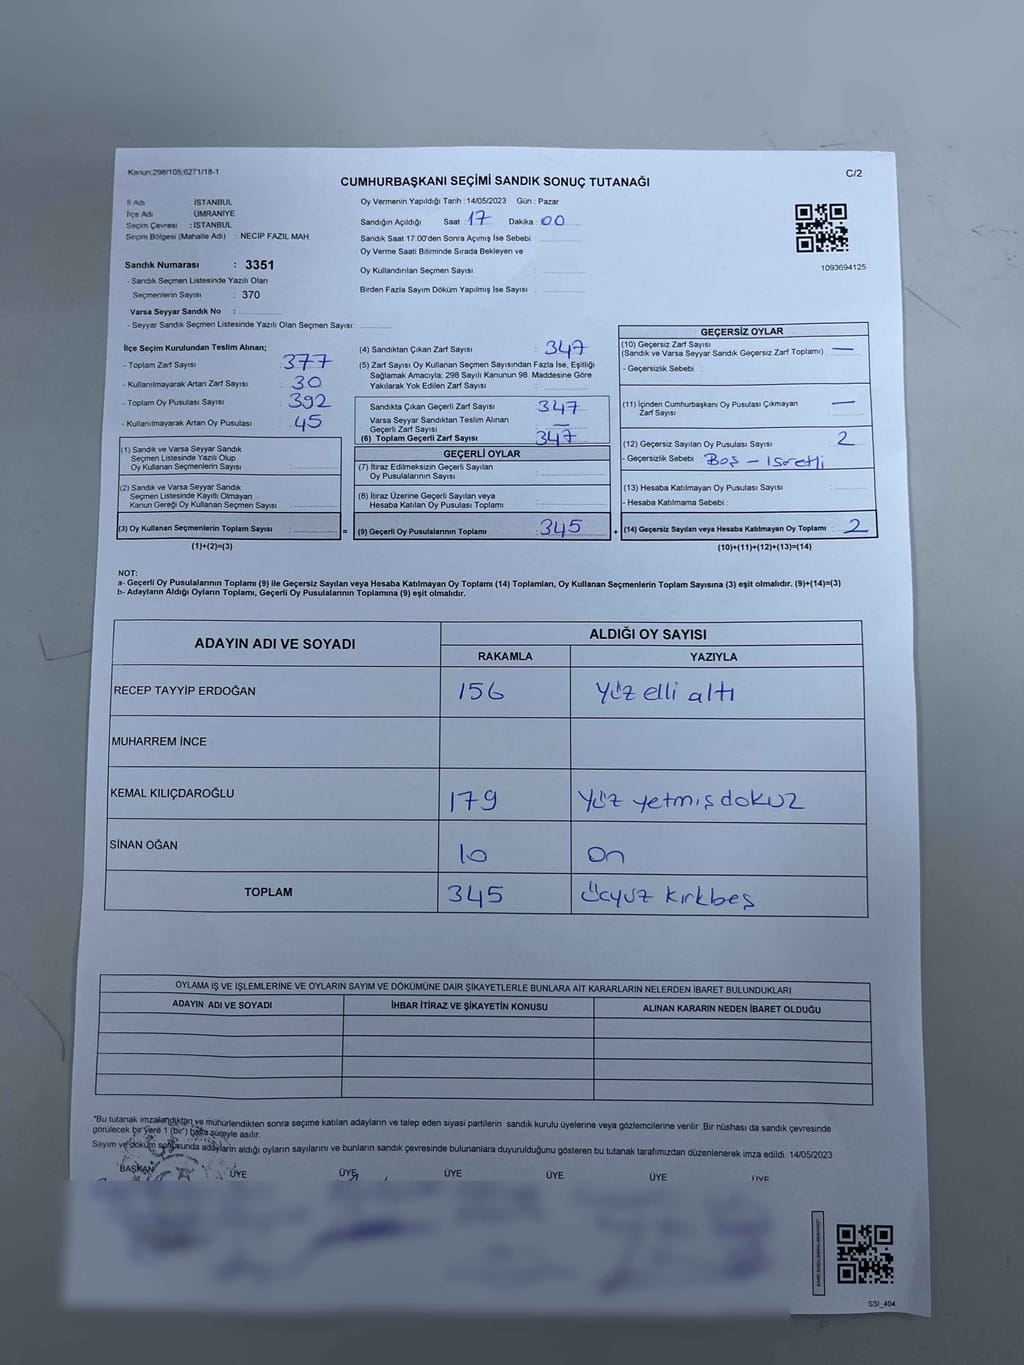 Kanun:298/105,6271/18-1
C/2
CUMHURBAŞKANI SEÇİMİ SANDIK SONUÇ TUTANAĞI
İl Adı : İSTANBUL
İlçe Adı : ÜMRANİYE
Seçim Çevresi : İSTANBUL
Seçim Bölgesi (Mahalle Adı) : NECİP FAZIL MAH.
Sandık Numarası : 3351
- Sandık Seçmen Listesinde Yazılı Olan
Seçmenlerin Sayısı : 370
Varsa Seyyar Sandık No :
- Seyyar Sandık Seçmen Listesinde Yazılı Olan Seçmen Sayısı:
Oy Vermenin Yapıldığı Tarih :14/05/2023 Gün : Pazar
Sandığın Açıldığı Saat : 17 Dakika : 00
Sandık Saat 17:00'den Sonra Açımış İse Sebebi :
Oy Verme Saati Bitiminde Sırada Bekleyen ve
Oy Kullandırılan Seçmen Sayısı :
Birden Fazla Sayım Döküm Yapılmış İse Sayısı :
1093694125
İlçe Seçim Kurulundan Teslim Alınan;
- Toplam Zarf Sayısı : 377
- Kullanılmayarak Artan Zarf Sayısı : 30
- Toplam Oy Pusulası Sayısı : 392
- Kullanılmayarak Artan Oy Pusulası : 45
(1) Sandık ve Varsa Seyyar Sandık
Seçmen Listesinde Yazılı Olup
Oy Kullanan Seçmenlerin Sayısı :
(2) Sandık ve Varsa Seyyar Sandık
Seçmen Listesinde Kayıtlı Olmayan
Kanun Gereği Oy Kullanan Seçmen Sayısı :
(3) Oy Kullanan Seçmenlerin Toplam Sayısı :
(1)+(2)=(3)
=
(4) Sandıktan Çıkan Zarf Sayısı : 347
(5) Zarf Sayısı Oy Kullanan Seçmen Sayısından Fazla İse, Eşitliği
Sağlamak Amacıyla; 298 Sayılı Kanunun 98. Maddesine Göre
Yakılarak Yok Edilen Zarf Sayısı :
Sandıkta Çıkan Geçerli Zarf Sayısı : 347
Varsa Seyyar Sandıktan Teslim Alınan
Geçerli Zarf Sayısı : —
(6) Toplam Geçerli Zarf Sayısı : 347
GEÇERLİ OYLAR
(7) İtiraz Edilmeksizin Geçerli Sayılan
Oy Pusulalarının Sayısı :
(8) İtiraz Üzerine Geçerli Sayılan veya
Hesaba Katılan Oy Pusulası Toplamı :
(9) Geçerli Oy Pusulalarının Toplamı : 345
+
GEÇERSİZ OYLAR
(10) Geçersiz Zarf Sayısı
(Sandık ve Varsa Seyyar Sandık Geçersiz Zarf Toplamı) : —
- Geçersizlik Sebebi :
(11) İçinden Cumhurbaşkanı Oy Pusulası Çıkmayan
Zarf Sayısı : —
(12) Geçersiz Sayılan Oy Pusulası Sayısı : 2
- Geçersizlik Sebebi : Boş – Isretli
(13) Hesaba Katılmayan Oy Pusulası Sayısı :
- Hesaba Katılmama Sebebi :
(14) Geçersiz Sayılan veya Hesaba Katılmayan Oy Toplamı : 2
(10)+(11)+(12)+(13)=(14)
NOT:
a- Geçerli Oy Pusulalarının Toplamı (9) ile Geçersiz Sayılan veya Hesaba Katılmayan Oy Toplamı (14) Toplamları, Oy Kullanan Seçmenlerin Toplam Sayısına (3) eşit olmalıdır. (9)+(14)=(3)
b- Adayların Aldığı Oyların Toplamı, Geçerli Oy Pusulalarının Toplamına (9) eşit olmalıdır.
ADAYIN ADI VE SOYADI
ALDIĞI OY SAYISI
RAKAMLA YAZIYLA
RECEP TAYYİP ERDOĞAN 156 Yüz elli altı
MUHARREM İNCE
KEMAL KILIÇDAROĞLU 179 Yüz yetmiş dokuz
SİNAN OĞAN 10 On
TOPLAM 345 Üçyüz kırkbeş
OYLAMA İŞ VE İŞLEMLERİNE VE OYLARIN SAYIM VE DÖKÜMÜNE DAİR ŞİKAYETLERLE BUNLARA AİT KARARLARIN NELERDEN İBARET BULUNDUKLARI
ADAYIN ADI VE SOYADI İHBAR İTİRAZ VE ŞİKAYETİN KONUSU ALINAN KARARIN NEDEN İBARET OLDUĞU
*Bu tutanak imzalandıktan ve mühürlendikten sonra seçime katılan adayların ve talep eden siyasi partilerin sandık kurulu üyelerine veya gözlemcilerine verilir. Bir nüshası da sandık çevresinde
görülecek bir yere 1 (bir) hafta süreyle asılır.
Sayım ve döküm sonucunda adayların aldığı oyların sayılarını ve bunların sandık çevresinde bulunanlara duyurulduğunu gösteren bu tutanak tarafımızdan düzenlenerek imza edildi. 14/05/2023
BAŞKAN ÜYE ÜYE ÜYE ÜYE ÜYE ÜYE
SSI_404